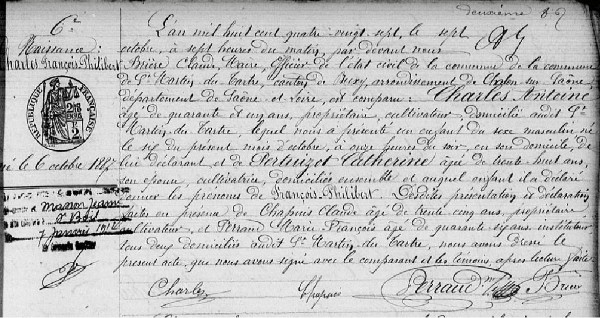 deuxième
6e
Naissance:
Charles François Philibert
né le 6 octobre 1887
RÉPUBLIQUE FRANÇAISE
Masson Jeanne
à Bort
7 janvier 1912
L'an mil huit cent quatre-vingt-sept, le sept
octobre, à sept heures du matin, par devant nous
Brière Claude Marie, Officier de l'état civil de la commune de la commune
de St Martin du Tartre, canton de Buxy, arrondissement de Chalon sur Saône,
département de Saône et Loire, est comparu: Charles Antoine
âgé de quarante et un ans, propriétaire, cultivateur, domicilié audit St
Martin du Tartre, lequel nous a présenté un enfant du sexe masculin né
le six du présent mois d'octobre, à onze heures du soir, en son domicile, de
lui déclarant et de Pertuizot Catherine âgée de trente huit ans,
son épouse, cultivatrice, domiciliés ensemble et auquel enfant il a déclaré
donner les prénoms de François-Philibert. Lesdites présentation et déclaration
faites en présence de Chapuis Claude âgé de trente cinq ans, propriétaire,
cultivateur, et Perraud Marie François âgé de quarante six ans, instituteur,
tous deux domiciliés audit St Martin du Tartre, nous avons dressé le
présent acte, que nous avons signé avec le comparant et les témoins, après lecture faite.
Charles Chapuis Perraud Brière